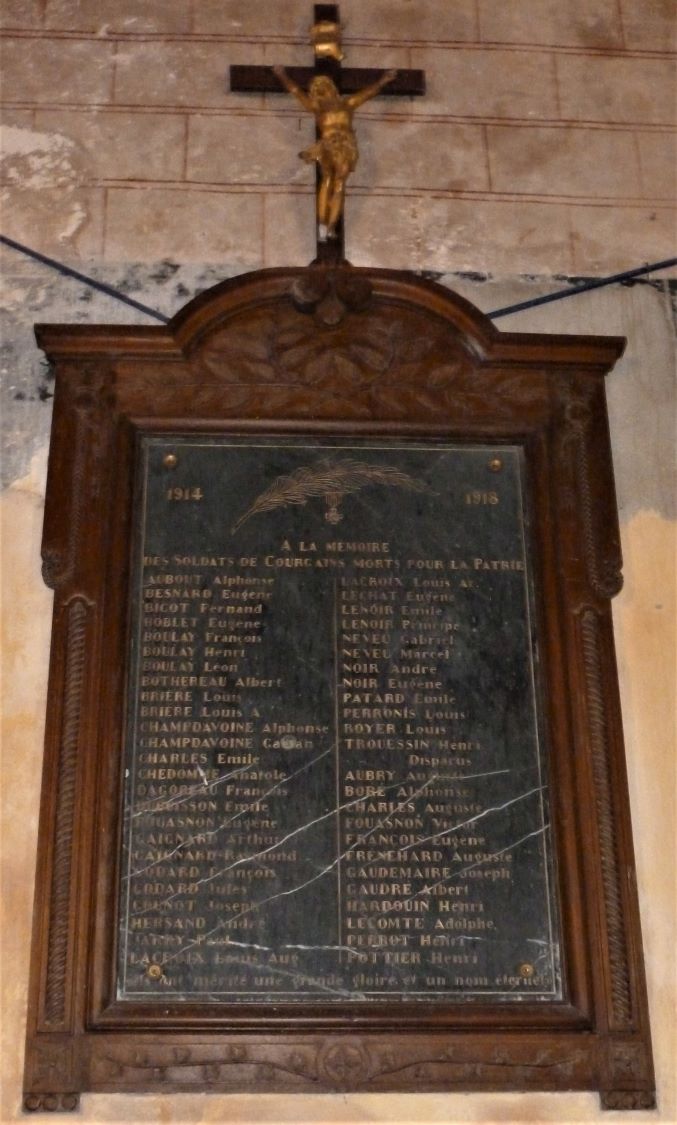 1914
1918
A LA MEMOIRE
DES SOLDATS DE COURGAINS MORTS POUR LA PATRIE
AUBOUT Alphonse
BESNARD Eugène
BIGOT Fernand
BOBLET Eugène
BOULAY François
BOULAY Henri
BOULAY Léon
BOTHEREAU Albert
BRIÈRE Louis
BRIERE Louis A
CHAMPDAVOINE Alphonse
CHAMPDAVOINE
CHARLES Emile
CHEDOMME Anatole
François
Emile
FOUASNON Eugène
GAIGNARD Arthur
GAIGNARD Raymond
GODARD François
GODARD Jules
Joseph
HERSAND André
JARRY Paul
LACROIX Louis Aug
LACROIX Louis
LECHAT Eugène
LENOIR Emile
LENOIR
NEVEU Gabriel
NEVEU Marcel
NOIR André
NOIR Eugène
PATARD Emile
PERRONIS Louis
ROYER Louis
TROUESSIN Henri
Disparus
AUBRY Auguste
BORÉ Alphonse
CHARLES Auguste
FOUASNON Victor
FRANÇOIS Eugène
FRENEHARD Auguste
GAUDEMAIRE Joseph
GAUDRÉ Albert
HARDOUIN Henri
LECOMTE Adolphe
Henri
POTTIER Henri
Ils ont mérité une grande gloire et un nom éternel